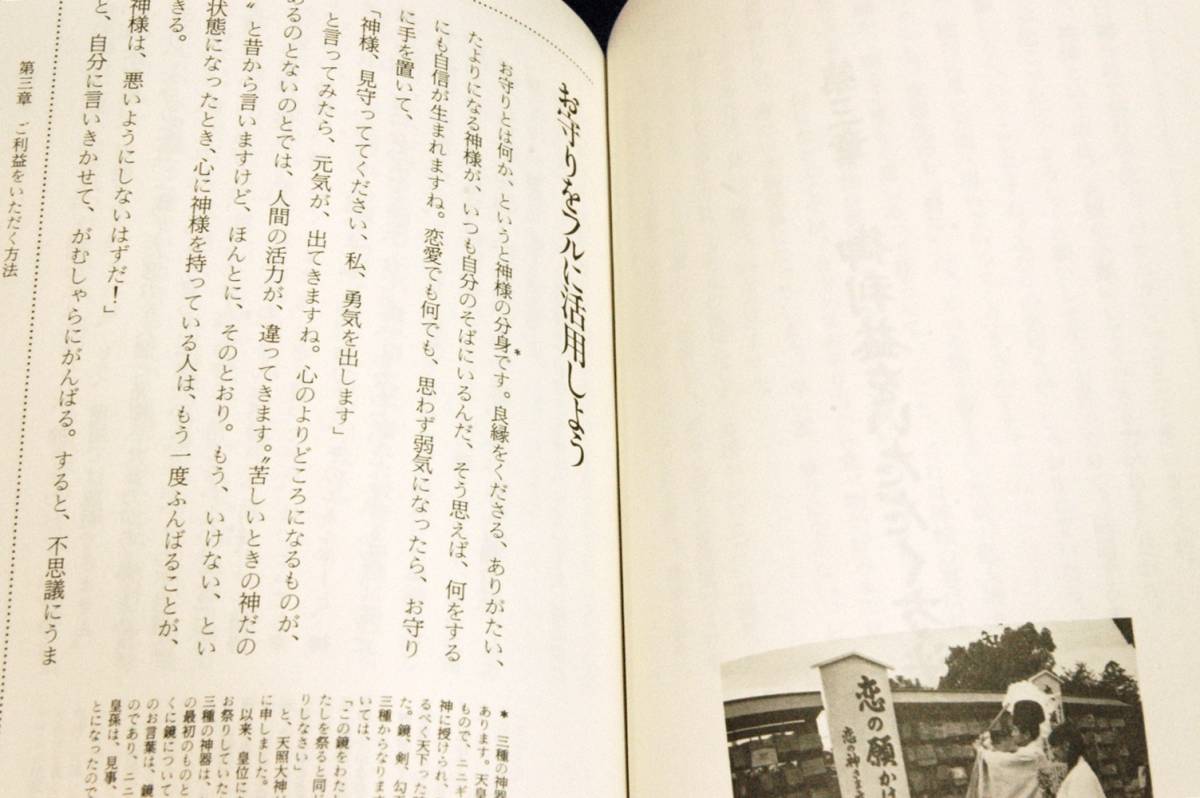 お守りをフルに活用しよう
お守りとは何か、というと神様の分身*です。良縁をくださる、ありがたい、
たよりになる神様が、いつも自分のそばにいるんだ、そう思えば、何をする
にも自信が生まれますね。恋愛でも何でも、思わず弱気になったら、お守り
に手を置いて、
「神様、見守っててください、私、勇気を出します」
と言ってみたら、元気が、出てきますね。心のよりどころになるものが、
あるのとないのとでは、人間の活力が、違ってきます。“苦しいときの神だの
”と昔から言いますけど、ほんとに、そのとおり。もう、いけない、とい
状態になったとき、心に神様を持っている人は、もう一度ふんばることが、
きる。
神様は、悪いようにしないはずだ！」
と、自分に言いきかせて、がむしゃらにがんばる。すると、不思議にうま
第三章　ご利益をいただく方法
* 三種の神器
あります。天皇
もので、ニニギ
神に授けられ、
るべく天下った
た。鏡、剣、勾
三種からなります
いては、
「この鏡をわた
たしを祭ると同じ
りしなさい」
と、天照大神
に申しました。
以来、皇位に
お祭りしていた
三種の神器は、
の最初のものと
くに鏡について
のお言葉は、鏡
のであり、ニニ
皇孫は、見事、
とになったので
恋の願かけ
恋の神さま